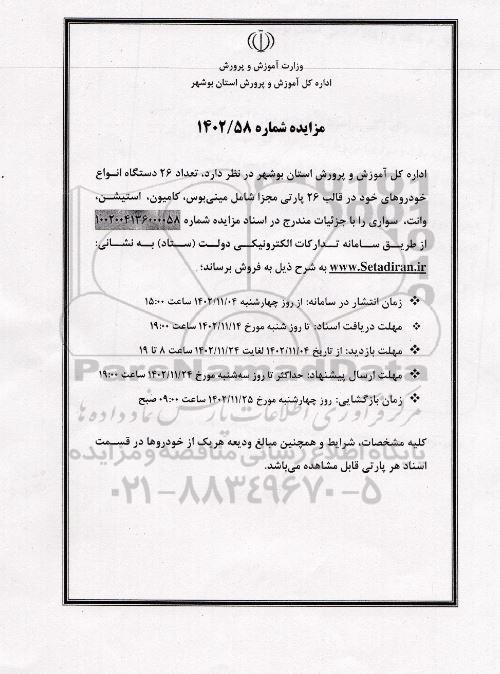 وزارت آموزش و پرورش
اداره کل آموزش و پرورش استان بوشهر
مزایده شماره ۱۴۰۲/۵۸
اداره کل آموزش و پرورش استان بوشهر در نظر دارد، تعداد ۲۶ دستگاه انواع
خودروهای خود در قالب ۲۶ پارتی مجزا شامل مینی‌بوس، کامیون، استیشن،
وانت، سواری را با جزئیات مندرج در اسناد مزایده شماره ۱۰۰۲۰۰۴۱۳۶۰۰۰۰۵۸
از طریق سامانه تدارکات الکترونیکی دولت (ستاد) به نشانی:
www.Setadiran.ir به شرح ذیل به فروش برساند؛
❖ زمان انتشار در سامانه: از روز چهارشنبه ۱۴۰۲/۱۱/۰۴ ساعت ۱۵:۰۰
❖ مهلت دریافت اسناد: تا روز شنبه مورخ ۱۴۰۲/۱۱/۱۴ ساعت ۱۹:۰۰
❖ مهلت بازدید: از تاریخ ۱۴۰۲/۱۱/۰۴ لغایت ۱۴۰۲/۱۱/۲۴ ساعت ۸ تا ۱۹
❖ مهلت ارسال پیشنهاد: حداکثر تا روز سه‌شنبه مورخ ۱۴۰۲/۱۱/۲۴ ساعت ۱۹:۰۰
❖ زمان بازگشایی: روز چهارشنبه مورخ ۱۴۰۲/۱۱/۲۵ ساعت ۰۹:۰۰ صبح
مرکز فرآوری اطلاعات پارس نماد داده ها
کلیه مشخصات، شرایط و همچنین مبالغ ودیعه هریک از خودروها در قسمت
پایگاه اطلاع رسانی مناقصه و مزایده
اسناد هر پارتی قابل مشاهده می‌باشد.
۰۲۱-۸۸۳۴۹۶۷۰-۵